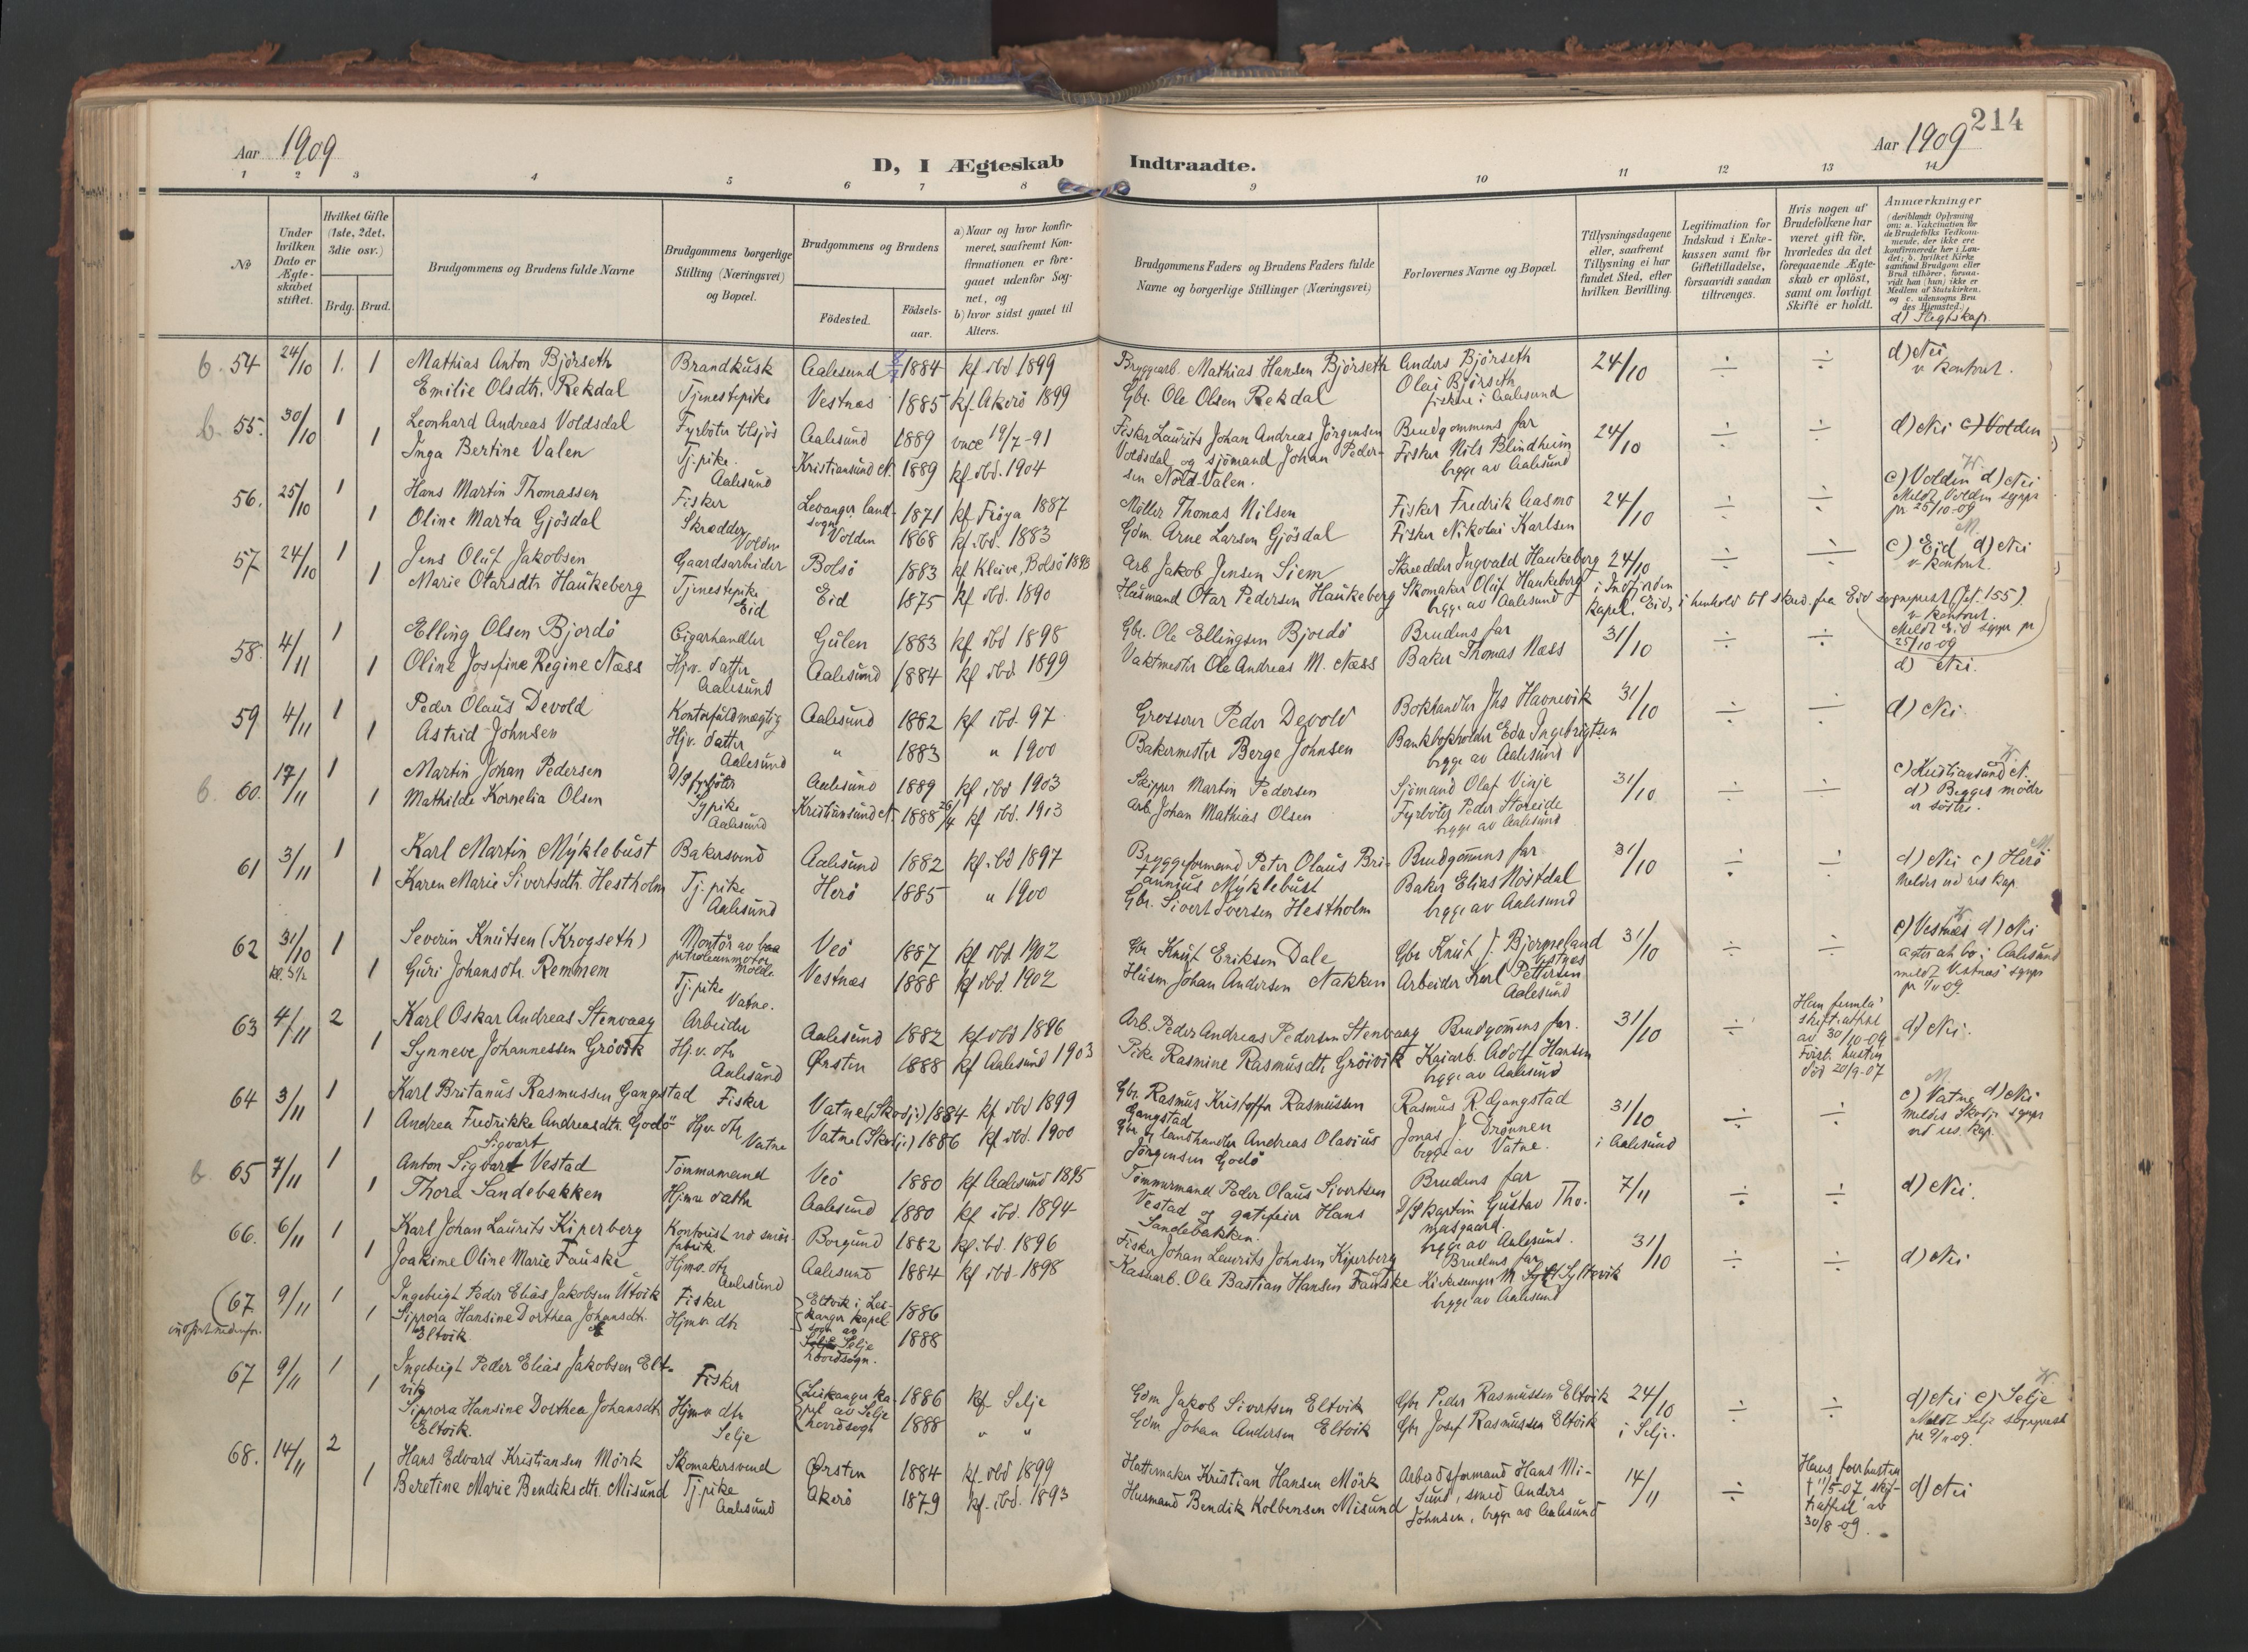 214
Aar 1909
Aar 1909
D, I Ægteskab Indtraadte.
1 2 3 4 5 6 7 8 9 10 11 12 13 14
№
Under hvilken Dato er Ægte-skabet stiftet.
Hvilket Gifte (1ste, 2det, 3die osv.)
Brdg. Brud.
Brudgommens og Brudens fulde Navne
Brudgommens borgerlige Stilling (Næringsvei) og Bopæl.
Brudgommens og Brudens
Födested. Födsels-aar.
a) Naar og hvor konfir-meret, saafremt Kon-firmationen er fore-gaaet udenfor Sog-net, og
b) hvor sidst gaaet til Alters.
Brudgommens Faders og Brudens Faders fulde Navne og borgerlige Stillinger (Næringsvei)
Forlovernes Navne og Bopæl.
Tillysningsdagene eller, saafremt Tillysning ei har fundet Sted, efter hvilken Bevilling.
Legitimation for Indskud i Enke-kassen samt for Giftetilladelse, forsaavidt saadan tiltrænges.
Hvis nogen af Brudefolkene har været gift för, hvorledes da det foregaaende Ægte-skab er oplöst, samt om lovligt Skifte er holdt.
Anmærkninger
d) Slegtskap.
b. 54 24/10 1. 1 Mathias Anton Björseth Brandkusk Aalesund 1884 kf. ibd 1899 Bryggearb. Mathias Hansen Björseth Anders Björseth 24/10 ÷ ÷ d) Nei
Emilie Olsdtr. Rekdal Tjenestepike Vestnæs 1885 kf. Akerö 1899 Gbr. Ole Olsen Rekdal Olai Björseth fiskere i Aalesund v. kontrort.
b. 55. 30/10 1 1 Leonhard Andreas Voldsdal Fyrböter tilsjös Aalesund 1889 vacc 19/7-91 Fisker Laurits Johan Andreas Jörgensen Brudgommens far 24/10 ÷ ÷ d) Nei c) Volden
Inga Bertine Valen Tj. pike Aalesund Kristiansund N. 1889 kf. ibd. 1904 Voldsdal og sjömand Johan Peder-sen Nord-Valen. Fisker Nils Blindheim begge av Aalesund
56. 25/10 1 1 Hans Martin Thomassen Fisker Levanger land-sogn 1871 kf. Fröya 1887 Möller Thomas Nilsen Fisker Fredrik Aasmo 24/10 ÷ ÷ c) Volden d) Nei
Oline Marta Gjösdal Skrædder Volden Volden 1868 kf. ibd. 1883 Gdm. Arne Larsen Gjösdal Fisker Nikolai Karlsen Meldt Volden sgnpr pr 25/10-09
57 24/10 1 1 Jens Oluf Jakobsen Gaardsarbeider Bolsö 1883 kf Kleive, Bolsö 1898 Arb. Jakob Jensen Siem Skrædder Ingvald Haukeberg 24/10 ÷ ÷ c) Eid d) Nei
Marie Otarsdtr. Haukeberg Tjenestepike Eid Eid 1875 kf ibd. 1890 Husmand Otar Pedersen Haukeberg Skomaker Oluf Haukeberg begge av Aalesund i Indfjorden kapel. Eid, i henhold til skriv. fra Eid sogneprest (Jef. 155).
Meldt Eid sgnpr pr 25/10-09
58. 4/11 1 1 Elling Olsen Bjordö Cigarhandler Gulen 1883 kf ibd 1898 Gbr. Ole Ellingsen Bjordö Brudens far 31/10 ÷ ÷ d) Nei.
Oline Josefine Regine Næss Hjv. datter Aalesund Aalesund 1884 kf ibd 1899 Vaktmester Ole Andreas M. Næss Baker Thomas Næss
59 4/11 1 1 Peder Olaus Devold Kontorfuldmægtig Aalesund 1882 kf ibd. 97 Grosserer Peder Devold Bokhandler Jhs Havnevik 31/10 ÷ ÷ d) Nei.
Astrid Johnsen Hjv. datter Aalesund " 1883 " 1900 Bakermester Berge Johnsen Bankbokholder Edv Ingebrigtsen begge av Aalesund
b. 60. 17/11 1 1 Martin Johan Pedersen D/S fyrböter Aalesund 1889 kf ibd 1903 Skipper Martin Pedersen Sjömand Olaf Vinje 31/10 ÷ ÷ c) Kristiansund N.
Mathilde Kornelia Olsen Sypike Aalesund Kristiansund N. 1888 26/4 kf ibd. 1913 Arb. Johan Mathias Olsen Fyrböter Peder Storeide begge av Aalesund d) Begges mödre er söstre.
61 3/11 1 1 Karl Martin Myklebust Bakersvend Aalesund 1882 kf. ibd 1897 Bryggeformand Peter Olaus Bri-tannius Myklebust Brudgommens far 31/10 ÷ ÷ d) Nei c) Herö
Karen Marie Sivertsdtr. Hestholm Tj. pike Aalesund Herö 1885 " 1900 Gbr. Sivert Iversen Hestholm Baker Elias Nöstdal begge av Aalesund Meldes ved res kap.
62 31/10 kl. 5½ 1 1 Severin Knutsen (Krogseth) Montör av petroleumsmotor Molde Veö 1887 kf ibd. 1902 Gbr Knut Eriksen Dale Gbr Knut J. Bjermeland Vestnæs 31/10 ÷ ÷ c) Vestnæs d) Nei
Guri Johansdtr. Remmem Tj. pike Vatne. Vestnæs 1888 kf ibd. 1902 Husm Johan Andersen Nakken Arbeider Karl Pettersen Aalesund agter at bo i Aalesund meldt Vestnæs sgnpr
63 4/11 2 1 Karl Oskar Andreas Stenvaag Arbeider Aalesund 1882 kf ibd 1896 Arb. Peder Andreas Pedersen Stenvaag Brudgommens far. 31/10 ÷ Han fremla skifteattest av 30/10-09 Först. hustru död 20/9-07 d) Nei.
Synneve Johannessen Grövik Hj.v. dtr Aalesund Ørsten 1888 kf Aalesund 1903 Pike Rasmine Rasmusdtr. Gröivik Kaiarb. Adolf Hansen begge av Aalesund
64 3/11 1 1 Karl Britanus Rasmussen Gangstad Fisker Vatne (Skodje) 1884 kf ibd 1899 Gbr. Rasmus Kristoffer Rasmussen Gangstad Rasmus R. Gangstad 31/10 i Aalesund ÷ ÷ c) Vatne d) Nei
Andrea Fredrikke Andreasdtr. Godö Hjv. dtr Vatne Vatne (Skodje) 1886 kf ibd. 1900 Gbr og landhandler Andreas Olavius Jörgensen Godö Jonas J. Drönnen begge av Vatne. meldes Skodje sgnpr ved res. kap.
Sigvart
b. 65 7/11 1 1 Anton Sigvart Vestad Tömmermand Veö 1880 kf Aalesund 1895 Tömmermand Peder Olaus Sivertsen Vestad og gatefeier Hans Sandebakken. Brudens far 7/11 ÷ ÷ d) Nei.
Thora Sandebakken Hjmv datter Aalesund 1880 kf ibd. 1894 D/S kaptein Gustav Tho-masgaard. begge av Aalesund.
66. 6/11 1 1 Karl Johan Laurits Kiperberg Kontorist ved smör-fabrik Borgund 1882 kf. ibd. 1896 Fisker Johan Laurits Johnsen Kiperberg Brudens far 31/10 ÷ ÷ d) Nei
Joakime Oline Marie Fauske Hjmv. dtr Aalesund Aalesund 1884 kf ibd. 1898 Kaiarb. Ole Bastian Hansen Fauske Kirkesanger M Syltevik begge av Aalesund
(67 9/11 1 1 Ingebrigt Peder Elias Jakobsen Utvik Fisker Eltvik i Lei-kanger kapel sogn av Selje hovedsogn. 1886
indfört nedenfor. Siprora Hansine Dorthea Johansdtr. Eltvik Hjmv. dtr 1888
67 9/11 1 1 Ingebrigt Peder Elias Jakobsen Elt-vik Fisker (Leikanger ka-pel av Selje hovedsogn 1886 kf Selje Gdm Jakob Sivertsen Eltvik Gbr Peder Rasmussen Eltvik 24/10 i Selje. ÷ ÷ d) Nei c) Selje
Siprora Hansine Dorthea Johansdtr Eltvik. Hjmv dtr Selje 1888 " " Gdm Johan Andersen Eltvik Gbr Josef Rasmussen Eltvik Meldt Selje sogneprest pr 9/11-09.
68. 14/11 2 1 Hans Edvard Kristiansen Mörk Skomakersvend Ørsten 1884 kf. ibd 1899 Hattemaker Kristian Hansen Mörk Arbeidsformand Hans Mi-sund, smed Anders Johnsen, begge av Aalesund 14/11 ÷ Hans forr hustru † 11/5-07 skif-teattest av 30/8-09. d) Nei
Beretine Marie Bendiksdtr. Misund Tj. pike Aalesund Akerö 1879 kf. ibd. 1893 Husmand Bendik Kolbensen Misund